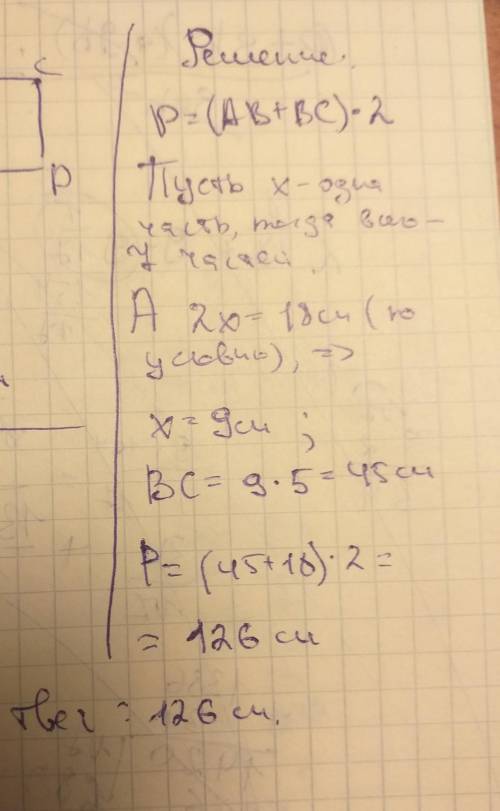 C
D
Решение.
P=(AB+BC)·2
Пусть x-одна
часть, тогда всего-
7 частей.
А 2x=18см (по
условию), =>
x=9см ;
BC= 9·5=45см
P= (45+18)·2=
= 126 см
твет: 126 см.